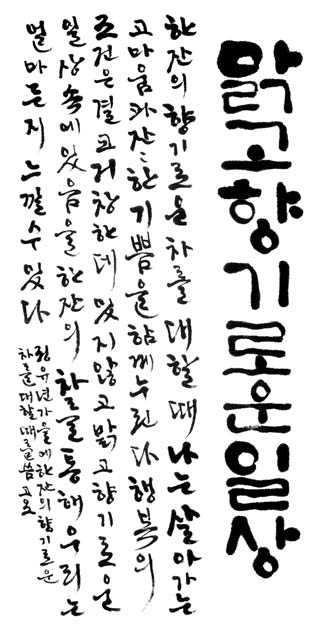 맑고 향기로운 일상
한잔의 향기로운 차를 대할 때 나는 살아가는
고마움과 잔잔한 기쁨을 함께 누린다 행복의
조건은 결코 거창한데 있지 않고 맑고 향기로운
일상 속에 있음을 한잔의 차를 통해 우리는
얼마든지 느낄 수 있다
정유년 가을에 한잔의 향기로운
차를 대할 때를 씀 고오